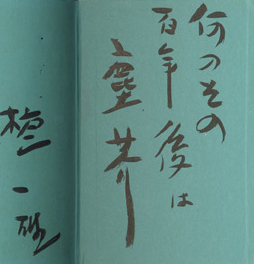 何のその
百年後は
塵芥
檀一雄